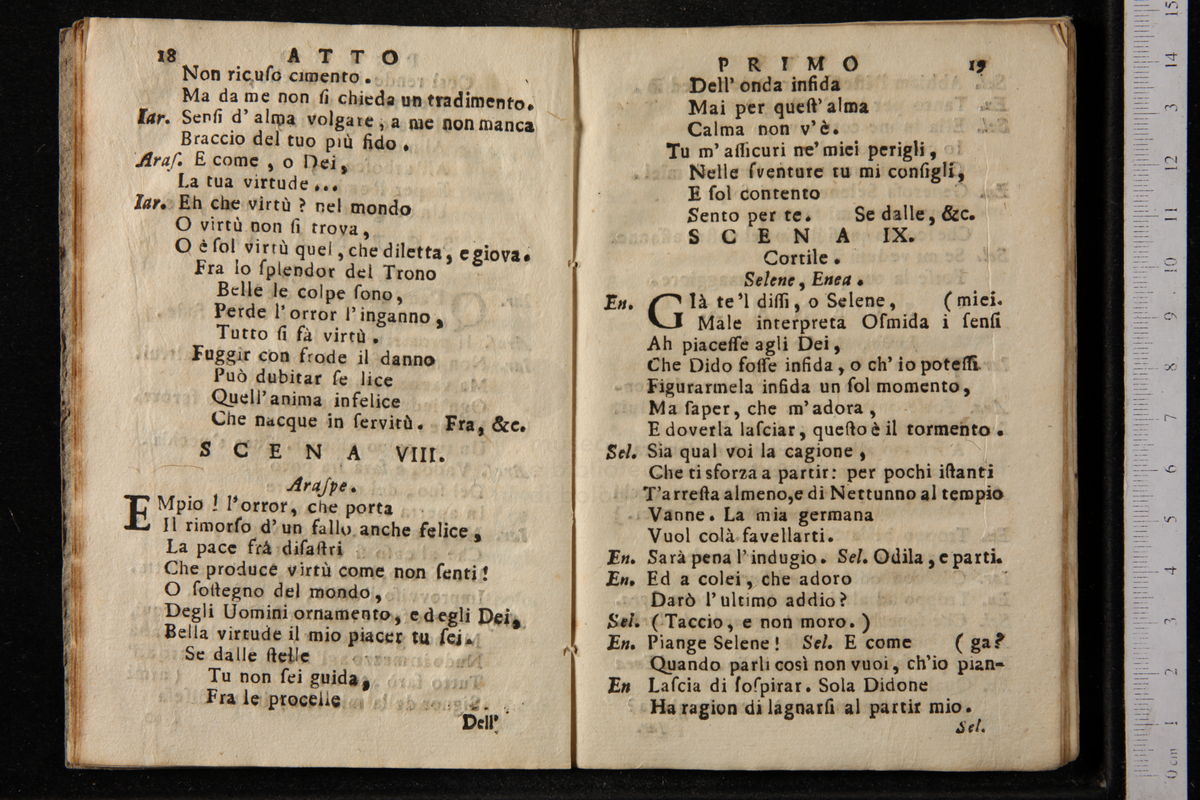 18 ATTO
Non ricuſo cimento.
Ma da me non ſi chieda un tradimento.
Iar. Senſi d' alma volgare, a me non manca
Braccio del tuo più fido.
Araſ. E come, o Dei,
La tua virtude...
Iar. Eh che virtù? nel mondo
O virtù non ſi trova,
O è ſol virtù quel, che diletta, e giova.
Fra lo ſplendor del Trono
Belle le colpe ſono,
Perde l'orror l'inganno,
Tutto ſi fà virtù.
Fuggir con frode il danno
Può dubitar ſe lice
Quell'anima infelice
Che nacque in ſervitù. Fra, &c.
SCENA VIII.
Araſpe.
EMpio! l'orror, che porta
Il rimorſo d'un fallo anche felice,
La pace frà diſaſtri
Che produce virtù come non ſenti!
O ſoſtegno del mondo,
Degli Uomini ornamento, e degli Dei,
Bella virtude il mio piacer tu ſei.
Se dalle ſtelle
Tu non ſei guida,
Fra le procelle
Dell'
PRIMO 19
Dell' onda infida
Mai per queſt' alma
Calma non v'è.
Tu m' aſſicuri ne' miei perigli,
Nelle ſventure tu mi conſigli,
E ſol contento
Sento per te. Se dalle, &c.
SCENA IX.
Cortile.
Selene, Enea.
En. GIà te'l diſſi, o Selene, (miei.
Male interpreta Oſmida i ſenſi
Ah piaceſſe agli Dei,
Che Dido foſſe infida, o ch' io poteſſi
Figurarmela infida un ſol momento,
Ma ſaper, che m'adora,
E doverla laſciar, queſto è il tormento.
Sel. Sia qual voi la cagione,
Che ti sforza a partir: per pochi iſtanti
T'arreſta almeno, e di Nettunno al tempio
Vanne. La mia germana
Vuol colà favellarti.
En. Sarà pena l'indugio. Sel. Odila, e parti.
En. Ed a colei, che adoro
Darò l'ultimo addio?
Sel. (Taccio, e non moro.)
En. Piange Selene! Sel. E come (ga?
Quando parli così non vuoi, ch'io pian-
En Laſcia di ſoſpirar. Sola Didone
Ha ragion di lagnarſi al partir mio.
Sel.
0 cm 1 2 3 4 5 6 7 8 9 10 11 12 3 14 15